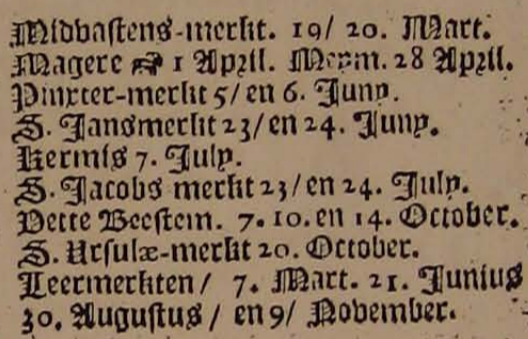 Midvastens-merkt. 19/ 20. Mart.
Magere 1 April. Meym. 28 April.
Pinxter-merkt 5/ en 6. Juny.
S. Jansmerkt 23/ en 24. Juny.
Kermis 7. July.
S. Jacobs merkt 23/ en 24. July.
Vette Beestem. 7. 10. en 14. October.
S. Ursulæ-merkt 20. October.
Leermerkten / 7. Mart. 21. Junius
30. Augustus / en 9/ November.